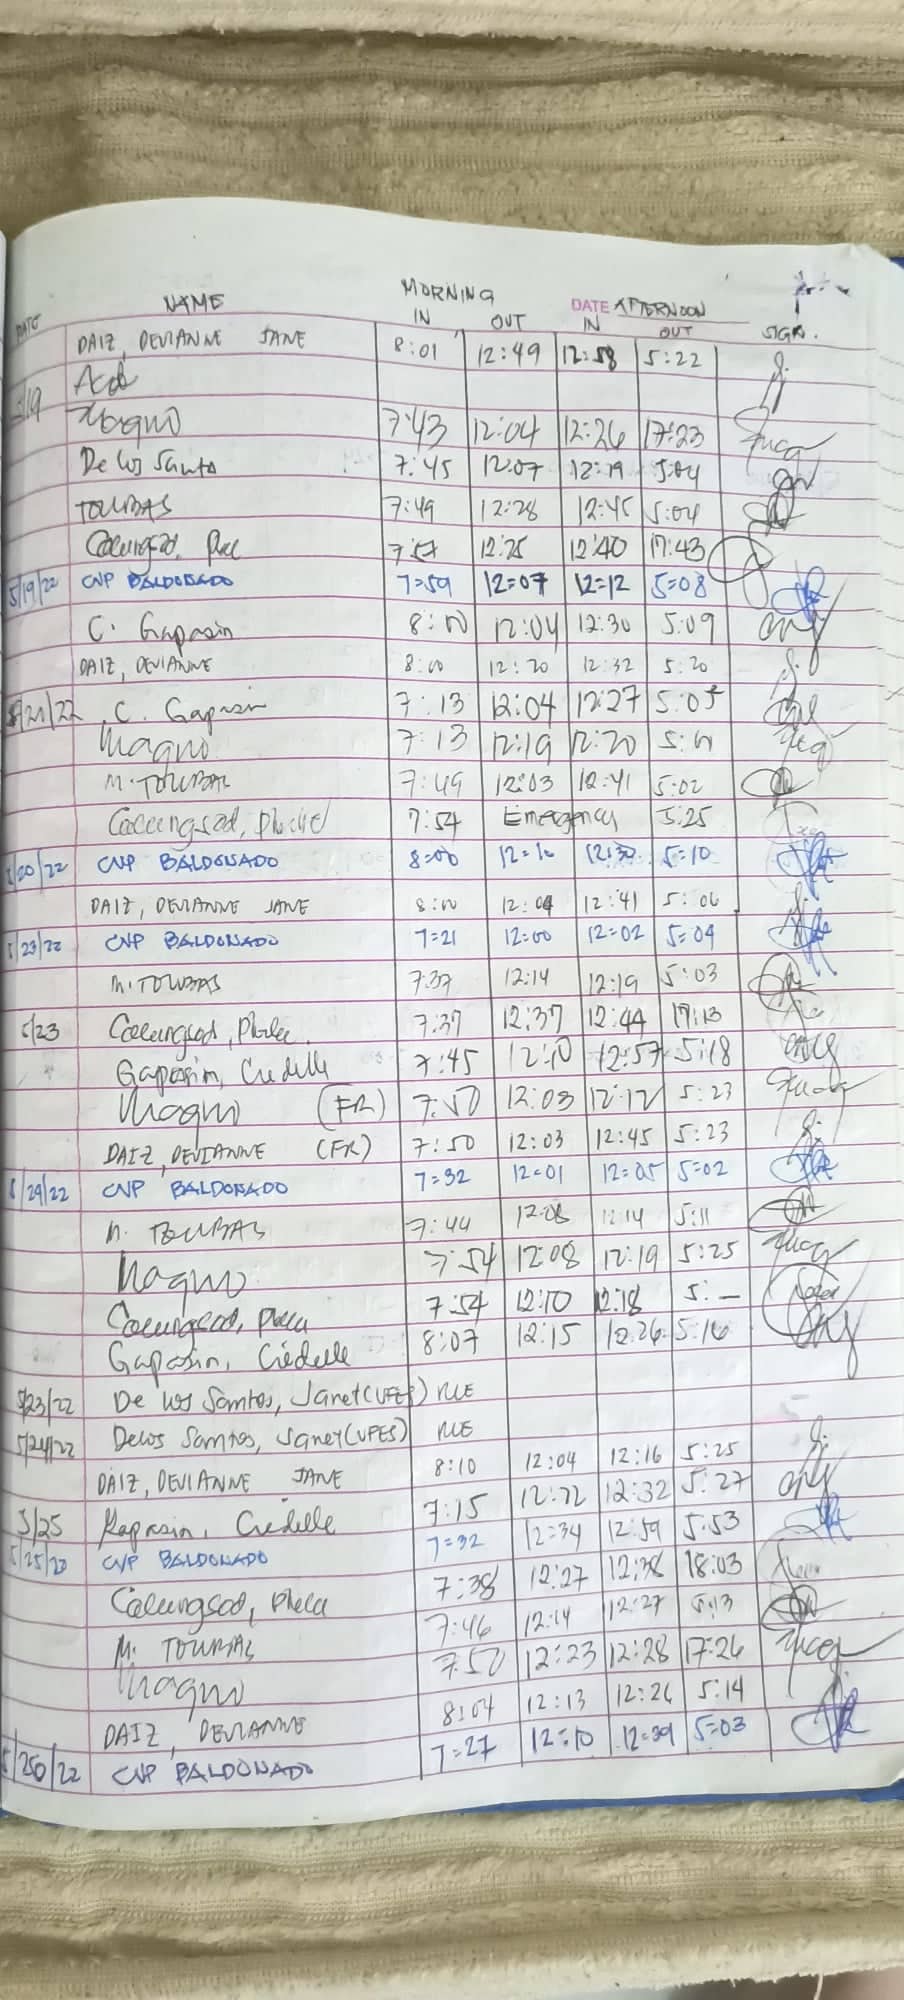 MORNING DATE AFTERNOON
DATE NAME IN OUT IN OUT SIGN.
DAIZ, DEVIANNE JANE 8:01 12:49 12:58 5:22
5/19
Magno 7:43 12:04 12:26 17:23
De los Santo 7:45 12:07 12:19 5:04
TOLIBAS 7:49 12:28 12:45 5:04
Calungsod, 7:57 12:25 12:40 17:43
5/19/22 CNP BALDONADO 7=59 12=07 12=12 5=08
C. Gapasin 8:00 12:04 12:30 5:09
DAIZ, DEVIANNE 8:00 12:20 12:32 5:20
/21/22 C. Gapasin 7:13 12:04 12:27 5:05
Magno 7:13 12:19 12:20
M. TOLIBAS 7:49 12:03 12:41 5:02
Calungsod, 7:54 Emergency 5:25
5/20/22 CNP BALDONADO 8=00 12=10 12=30 5=10
DAIZ, DEVIANNE JANE 8:00 12:04 12:41 5:06
5/23/22 CNP BALDONADO 7=21 12=00 12=02 5=04
M. TOLIBAS 7:37 12:14 12:19 5:03
5/23 Calungsod, 7:37 12:37 12:44 17:13
Gapasin, Criedelle 7:45 12:10 12:57 5:18
Magno (FR) 7:50 12:03 12:12 5:23
DAIZ, DEVIANNE (FR) 7:50 12:03 12:45 5:23
5/24/22 CNP BALDONADO 7=32 12=01 12=05 5=02
M. TOLIBAS 7:44 12:08 12:14 5:11
Magno 7:54 12:08 12:19 5:25
Calungsod, 7:54 12:10 12:18 5:—
Gapasin, Criedelle 8:07 12:15 12:26 5:16
5/23/22 De los Santos, Janet (VPES)
5/24/22 Delos Santos, Janet (VPES)
DAIZ, DEVIANNE JANE 8:10 12:04 12:16 5:25
5/25 Gapasin, Criedelle 7:15 12:22 12:32 5:27
5/25/22 CNP BALDONADO 7=32 12=34 12=59 5=53
Calungsod, 7:38 12:27 12:38 18:03
M. TOLIBAS 7:46 12:14 12:27 5:13
Magno 7:50 12:23 12:28 17:26
DAIZ, DEVIANNE 8:04 12:13 12:26 5:14
5/26/22 CNP BALDONADO 7=27 12=10 12=39 5=03